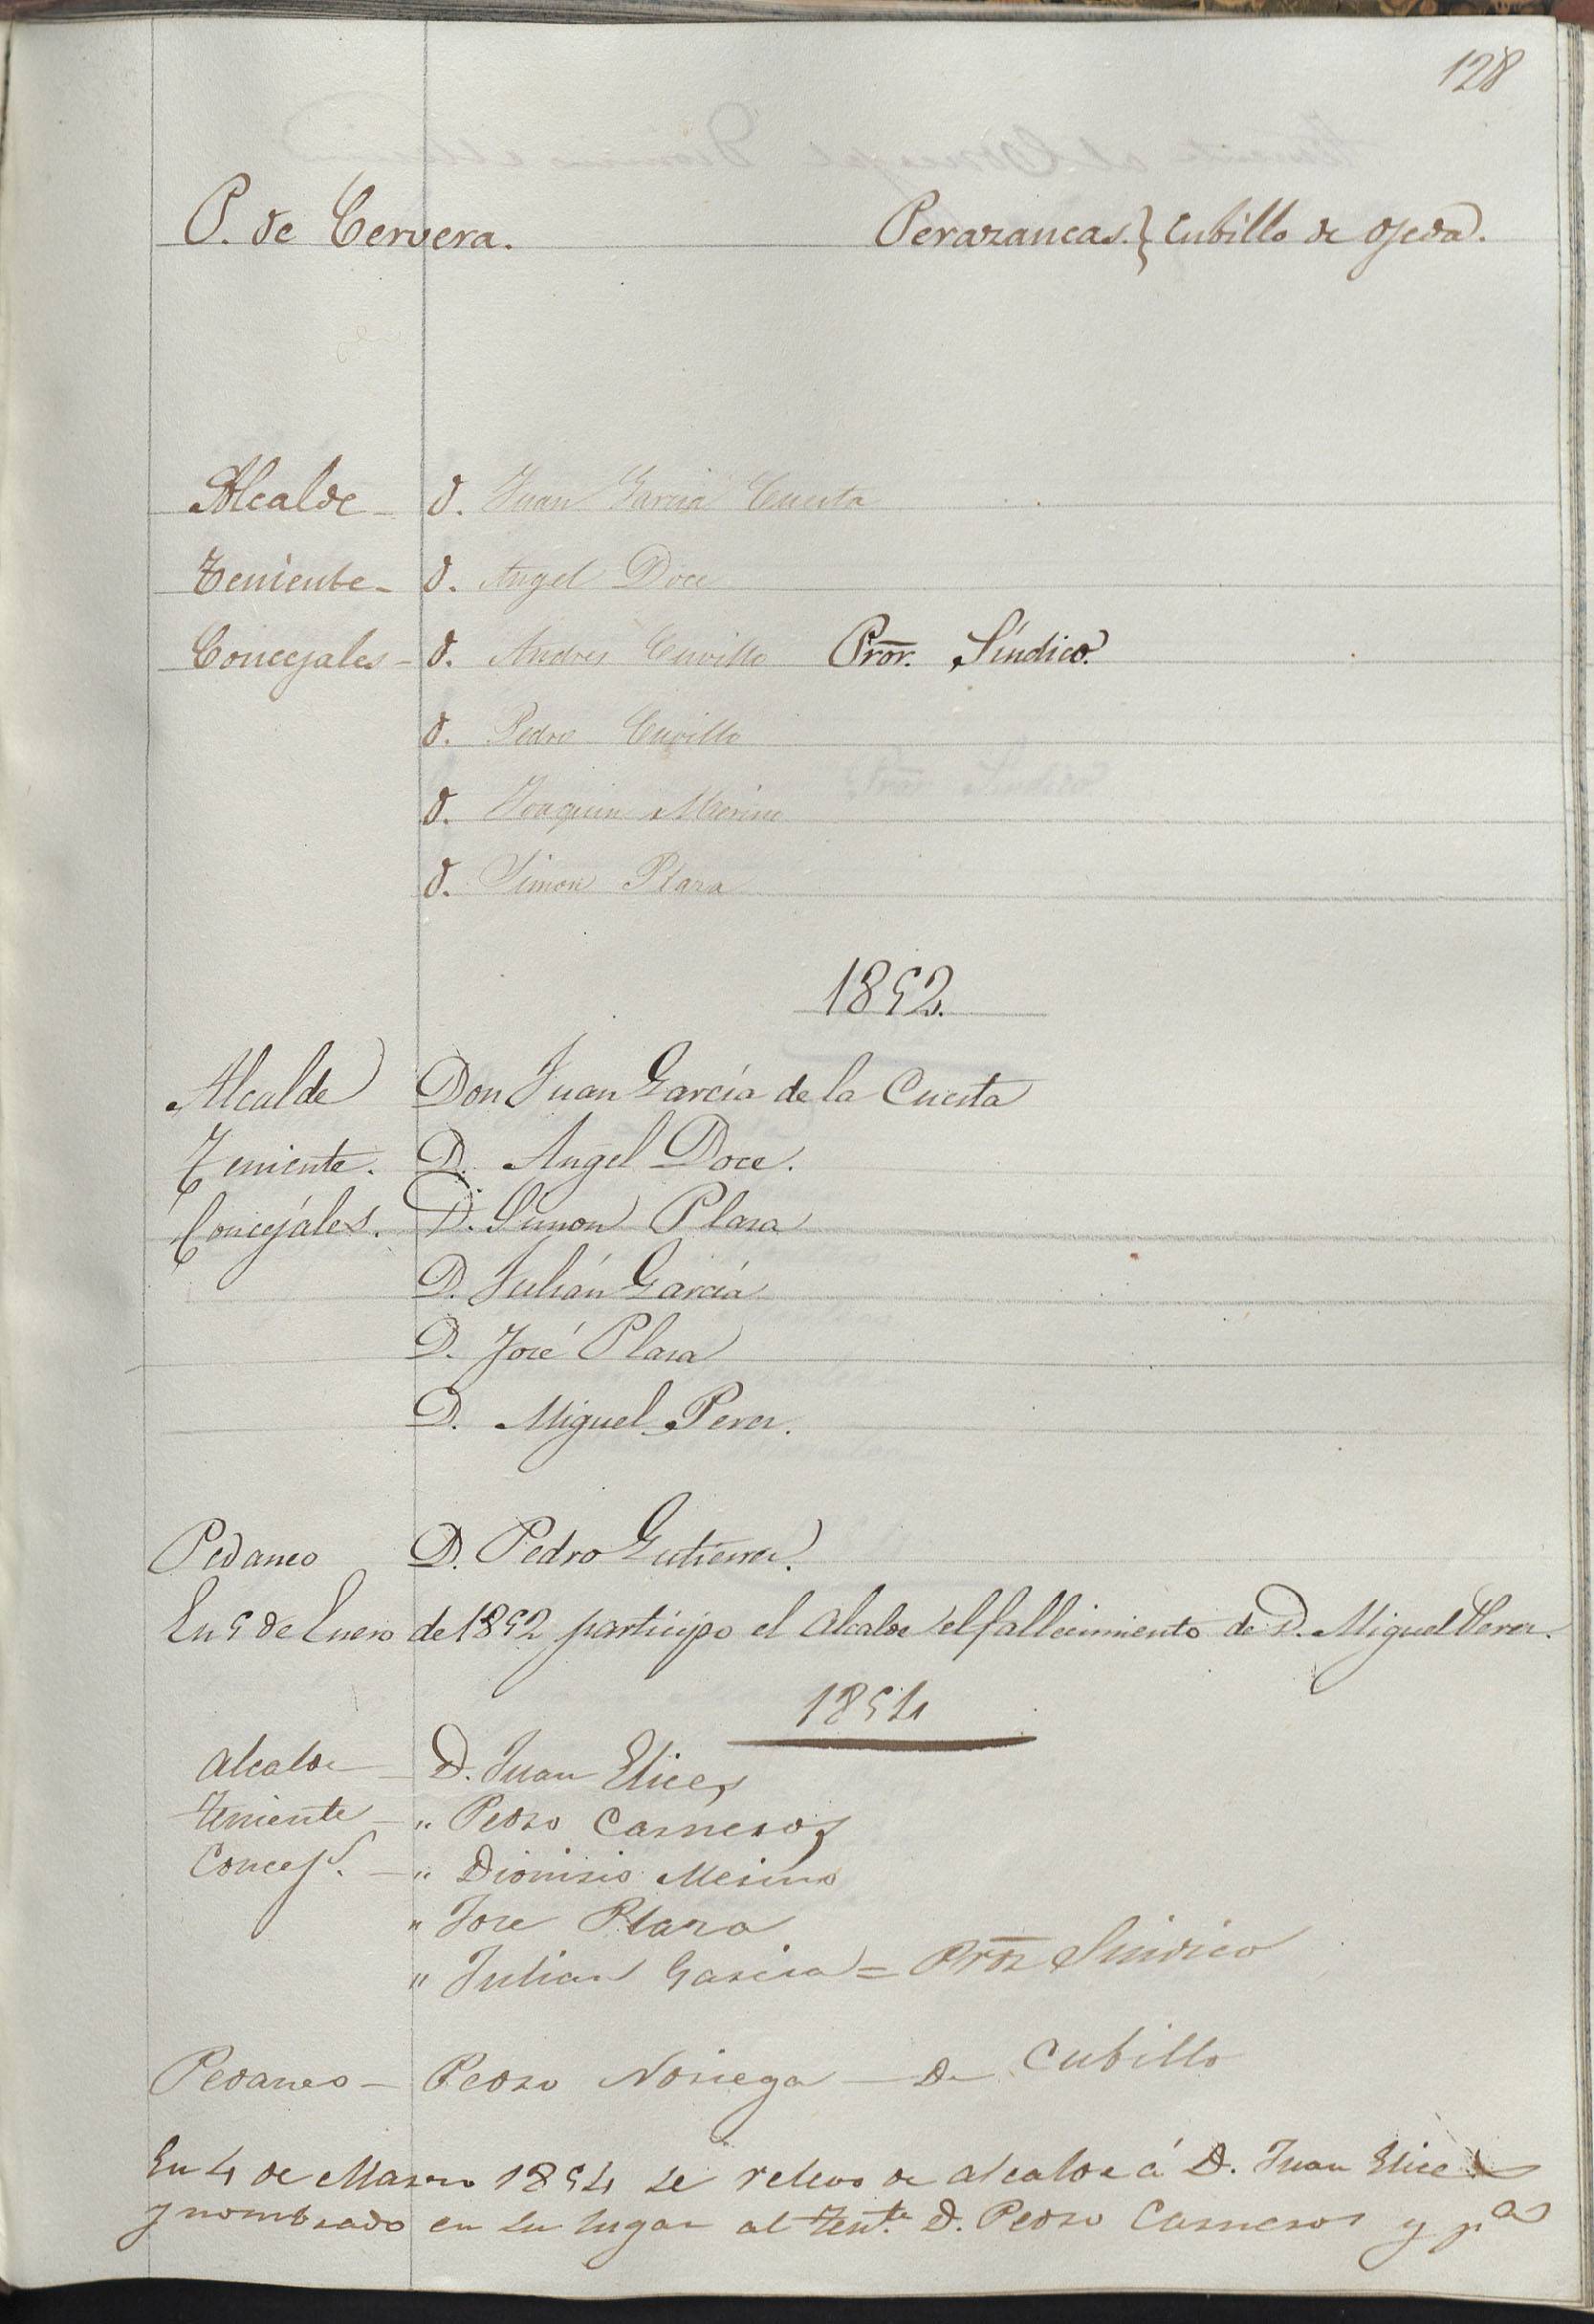 128
P. de Cervera. Perazancas.} Cubillo de Ojeda.
Alcalde - D. Juan Garcia Cuesta
Teniente - D. Angel Doce
Concejales - D. Andres Cuvillo Pror. Síndico.
D. Pedro Cuvillo
D. Joaquin Merino
D. Simon Plaza
1852.
Alcalde Don Juan García de la Cuesta
Teniente. D. Angel Doce.
Concejáles. D. Simon Plaza
D. Julián García
D. José Plaza
D. Miguel Perez.
Pedaneo D. Pedro Gutierrez.
En 5 de Enero de 1852 participo el Alcalde el fallecimiento de D. Miguel Perez.
1854
Alcalde - D. Juan Elices
Teniente - " Pedro Carneros
Concejs. - " Dionisio Merino
" Jose Plaza
" Julian Garcia = Pror Sindico
Pedaneo - Pedro Noriega - De Cubillo
En 4 de Marzo 1854 se relevo de alcalde á D. Juan Elices
y nombrado en su lugar al Tente. D. Pedro Carneros y pa